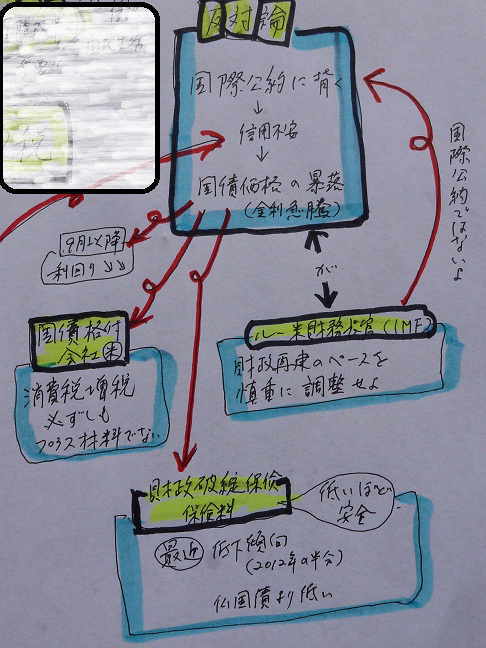 反対論
国際公約に背く
↓
信用不安
↓
国債価格の暴落
(金利急騰)
国際公約ではないよ
9月以降
利回り↓↓
が
国債格付
会社(米)
消費税増税
必ずしも
プラス材料でない
ルー米財務長官(IMF)
財政再建のペースを
慎重に調整せよ
財政破綻保険
保険料
低いほど
安全
最近 低下傾向
(2012年の半分)
仏国債より低い
税